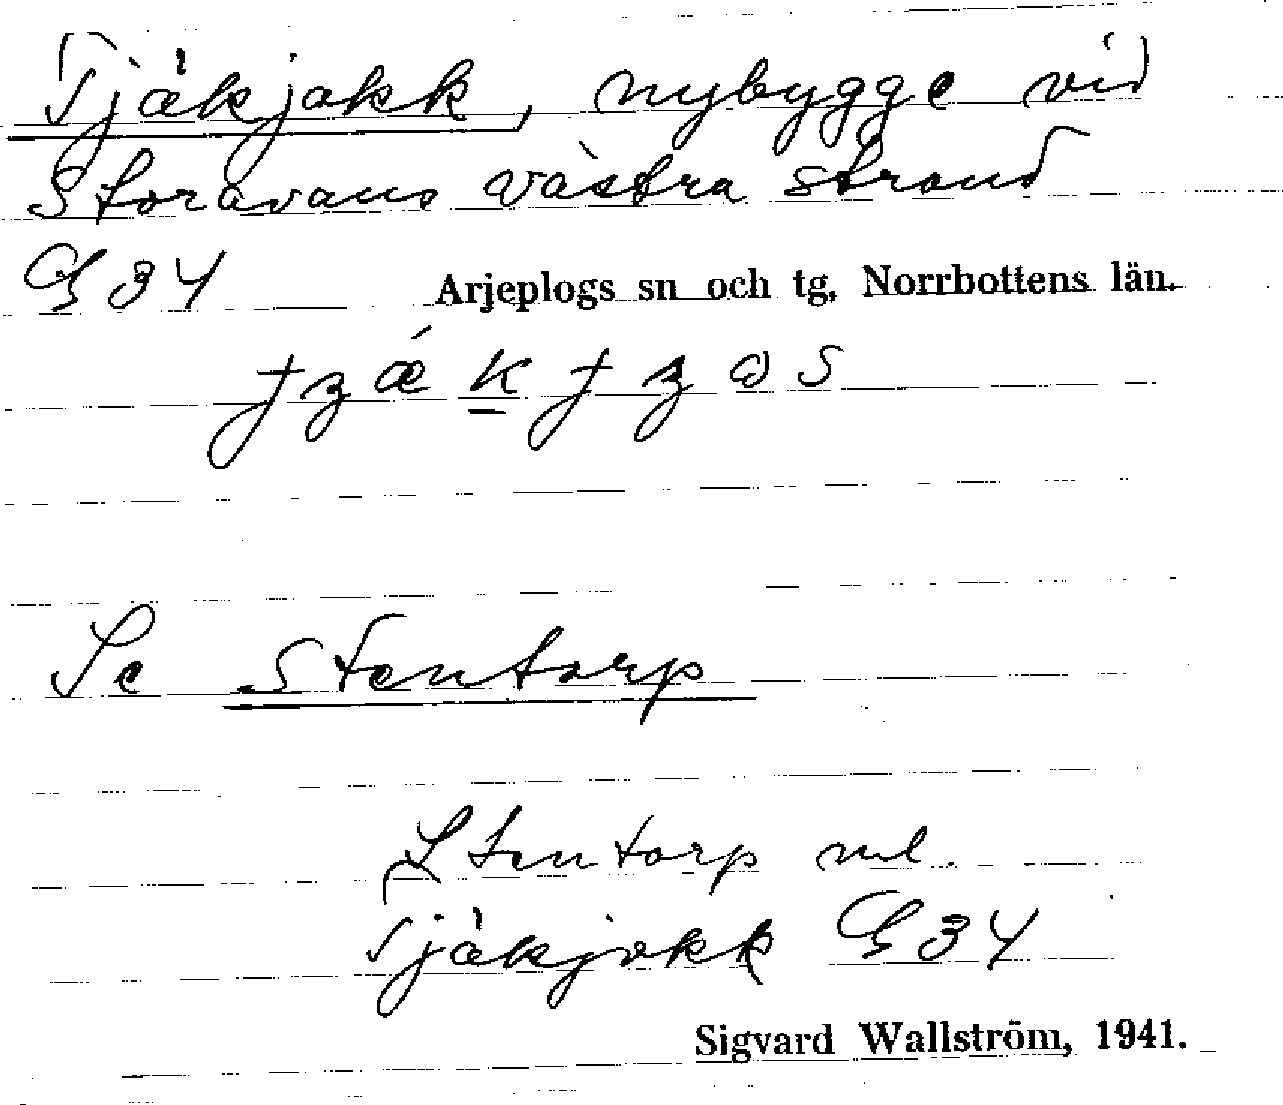 Tjäkjakk, nybygge vid
Storavans västra strand
G 34 Arjeplogs sn och tg, Norrbottens län.
Se Stentorp
Stentorp ml.
Tjäkjokk G 34
Sigvard Wallström, 1941.